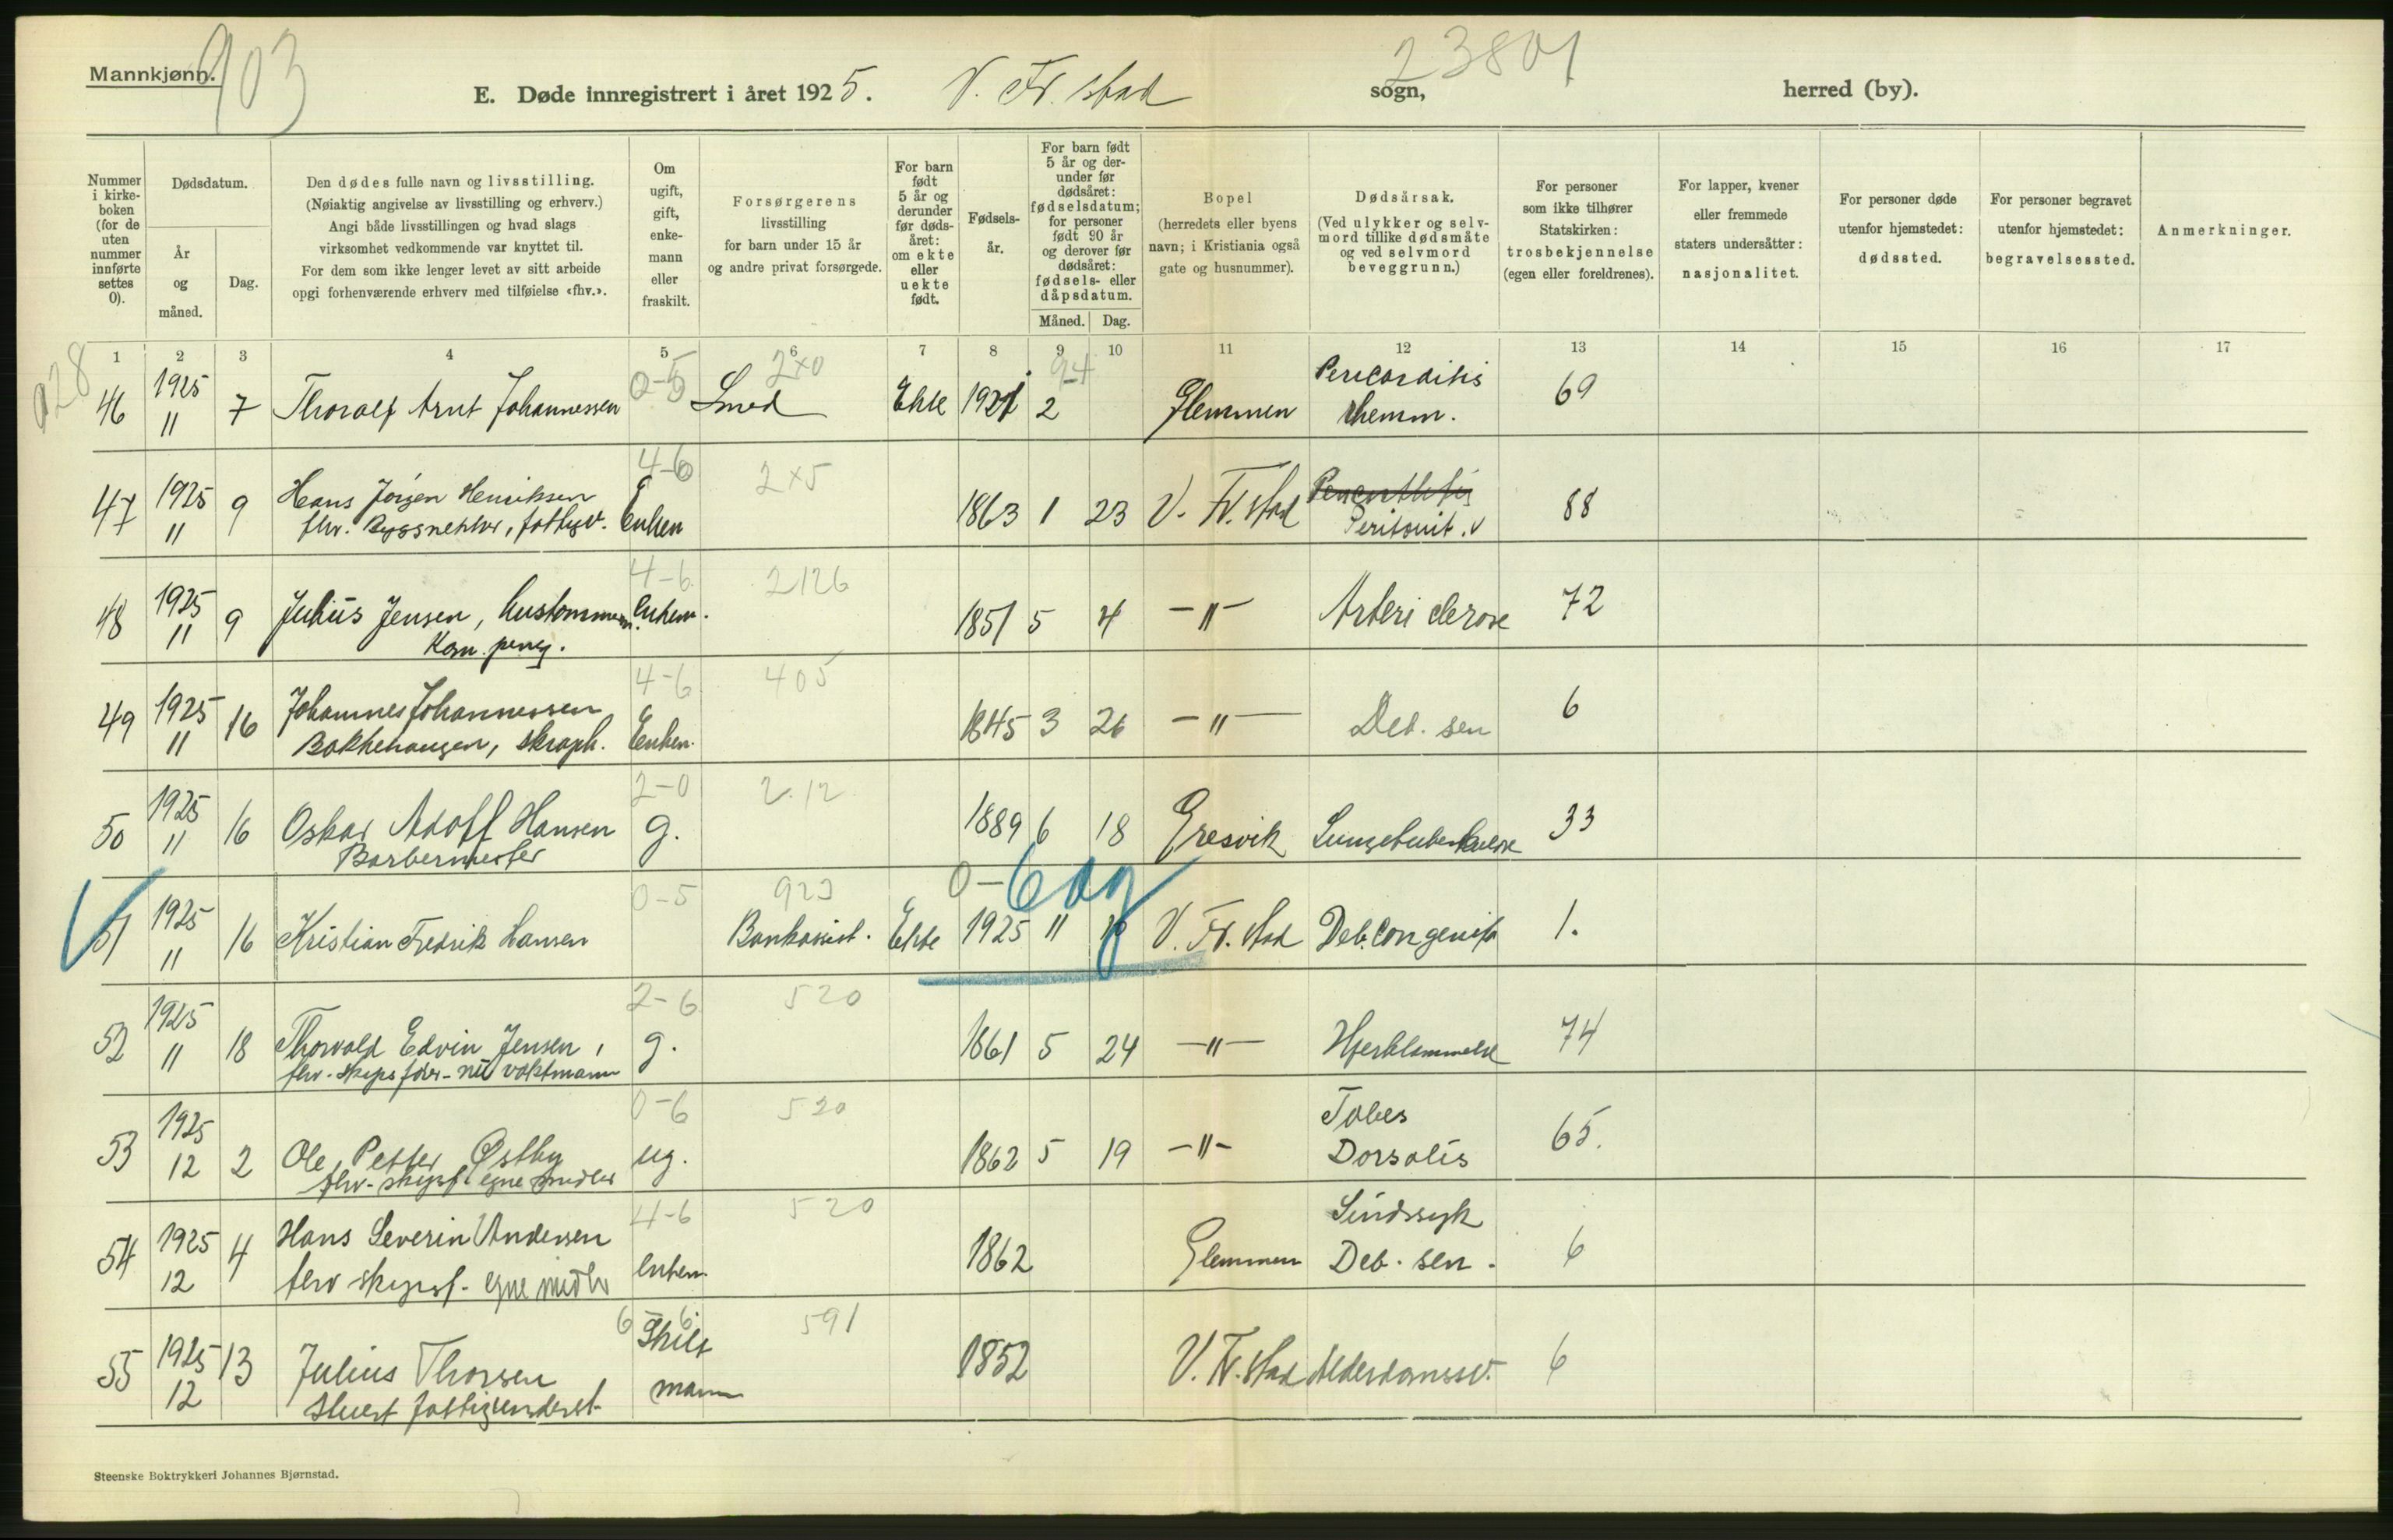 Mannkjønn.
903
E. Døde innregistrert i året 1925. V. Fr. stad sogn, herred (by).
23801
Nummer i kirkeboken (for de uten nummer innførte settes 0).
Dødsdatum.
År og måned.
Dag.
Den dødes fulle navn og livsstilling.
(Nøiaktig angivelse av livsstilling og erhverv.)
Angi både livsstillingen og hvad slags
virksomhet vedkommende var knyttet til.
For dem som ikke lenger levet av sitt arbeide
opgi forhenværende erhverv med tilføielse «fhv.».
Om ugift, gift, enkemann eller fraskilt.
Forsørgerens livsstilling for barn under 15 år og andre privat forsørgede.
For barn født 5 år og derunder før dødsåret: om ekte eller uekte født.
Fødselsår.
For barn født 5 år og derunder før dødsåret: fødselsdatum; for personer født 90 år og derover før dødsåret: fødsels- eller dåpsdatum.
Måned. Dag.
Bopel (herredets eller byens navn; i Kristiania også gate og husnummer).
Dødsårsak. (Ved ulykker og selvmord tillike dødsmåte og ved selvmord beveggrunn.)
For personer som ikke tilhører Statskirken: trosbekjennelse (egen eller foreldrenes).
For lapper, kvener eller fremmede staters undersåtter: nasjonalitet.
For personer døde utenfor hjemstedet: dødssted.
For personer begravet utenfor hjemstedet: begravelsessted.
Anmerkninger.
1 2 3 4 5 6 7 8 9 10 11 12 13 14 15 16 17
928
0-5 2x0 94
46 1925 11 7 Thoralf Arnt Johannessen Smed Ekte 1921 2 Glemmen Pericarditis rhemm. 69
4-6 2x5
47 1925 11 9 Hans Jørgen Henriksen Enkem 1863 1 23 V. Fr. stad Peritonit. v 88
4-6 2126
48 1925 11 9 Julius Jensen, hustømmerm. Enkem. 1851 5 4 -"- Arteri sclerose 72
Kom. peng.
4-6 405
49 1925 11 16 Johannes Johannessen Enkem. 1845 3 26 -"- Deb. sen 6
Bakkehaugen, skraph.
2-0 2.12
50 1925 11 16 Oskar Adolf Hansen g. 1889 6 18 Gresvik Lungetuberkulose 33
Barbermester
0-5 923 0-6 dg
51 1925 11 16 Kristian Fredrik Hansen Bankassist. Ekte 1925 11 V. Fr. stad Deb. Congenita 1.
2-6 520
52 1925 11 18 Thorvald Edvin Jensen, g. 1861 5 24 -"- Hjertelammelse 74
fhv. skipsfører - nu vaktmann
0-6 520
53 1925 12 2 Ole Petter Østby ug. 1862 5 19 -"- Tabes Dorsalis 65.
fhv. skipsf. egne midler
4-6 520
54 1925 12 4 Hans Severin Andersen enkem. 1862 Glemmen Sindssyk Deb. sen. 6
fhv skipsf. egne midler
6 6 591
55 1925 12 13 Julius Thorsen Skilt mann 1852 V. Fr. stad Alderdomssv. 6
Stuert fattigunderst.
Steenske Boktrykkeri Johannes Bjørnstad.